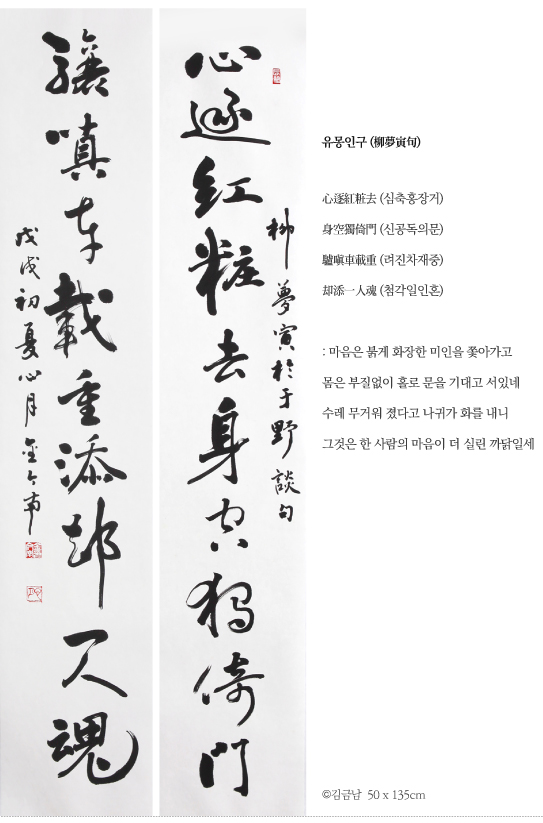 心逐紅粧去身空獨倚門
柳夢寅於于野談句
驤嗔車載重添却一人魂
戊戌初夏心月金今南
유몽인구 (柳夢寅句)
心逐紅粧去 (심축홍장거)
身空獨倚門 (신공독의문)
驢嗔車載重 (려진차재중)
却添一人魂 (첨각일인혼)
: 마음은 붉게 화장한 미인을 쫓아가고
몸은 부질없이 홀로 문을 기대고 서있네
수레 무거워 졌다고 나귀가 화를 내니
그것은 한 사람의 마음이 더 실린 까닭일세
©김금남 50 x 135cm